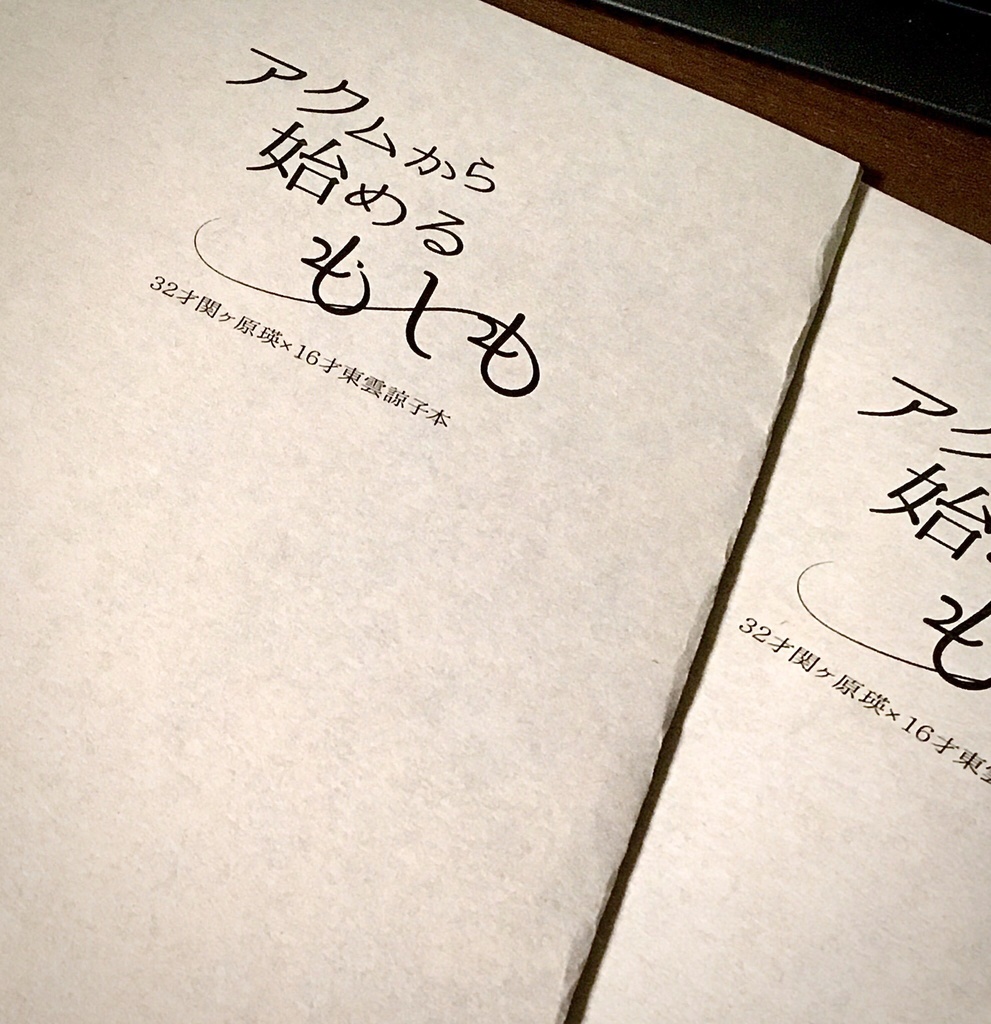 アクムから
始める
もしも
32才関ヶ原瑛×16才東雲諒子本
アク
始
も
32才関ヶ原瑛×16才東雲